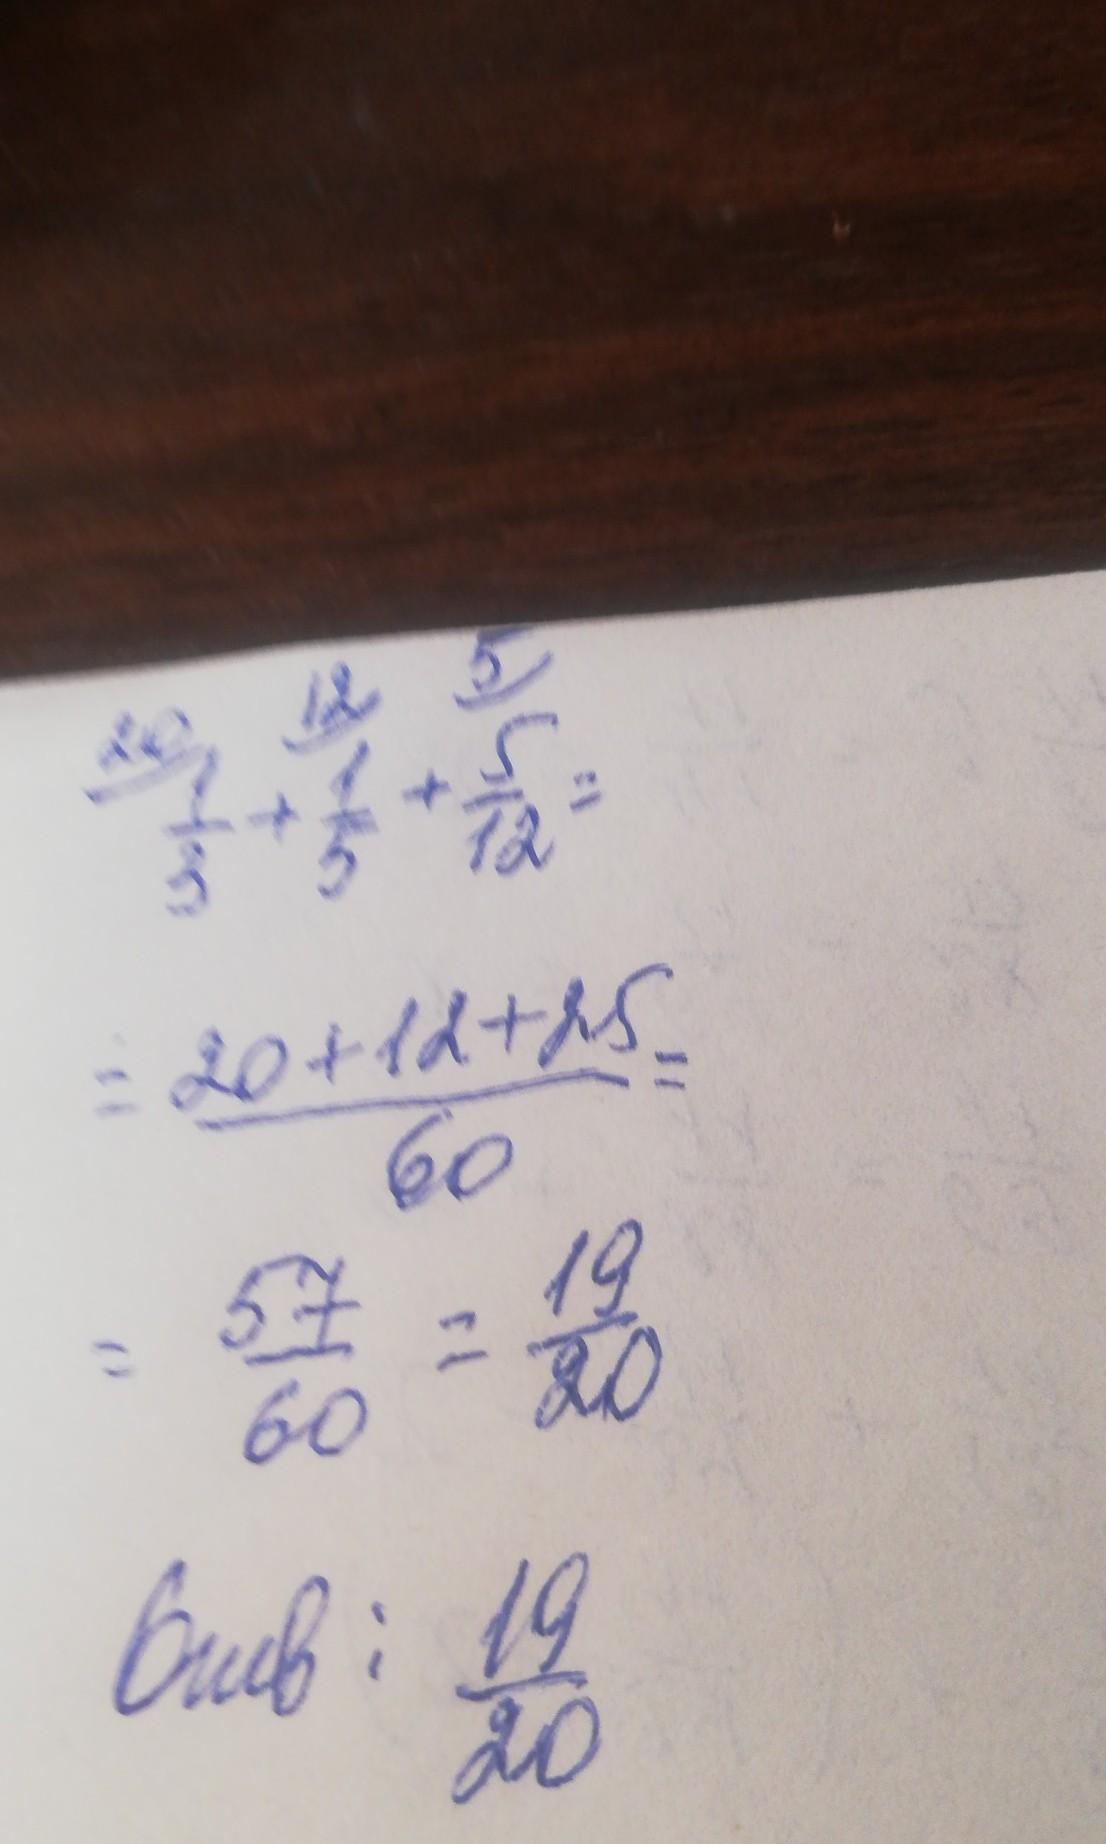 20 12 5
1/3 + 1/5 + 5/12 =
= 20+12+25/60 =
= 57/60 = 19/20
Отв: 19/20